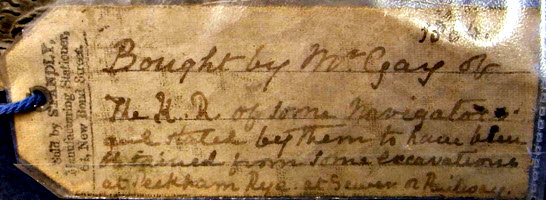 Bought by Mr Gay of
The H. R. of some Navigators
and stated by them to have been
obtained from some excavations
at Peckham Rye, at Sewer or Railway.
Sold by
Manufacturing Stationer,
New Bond Street.